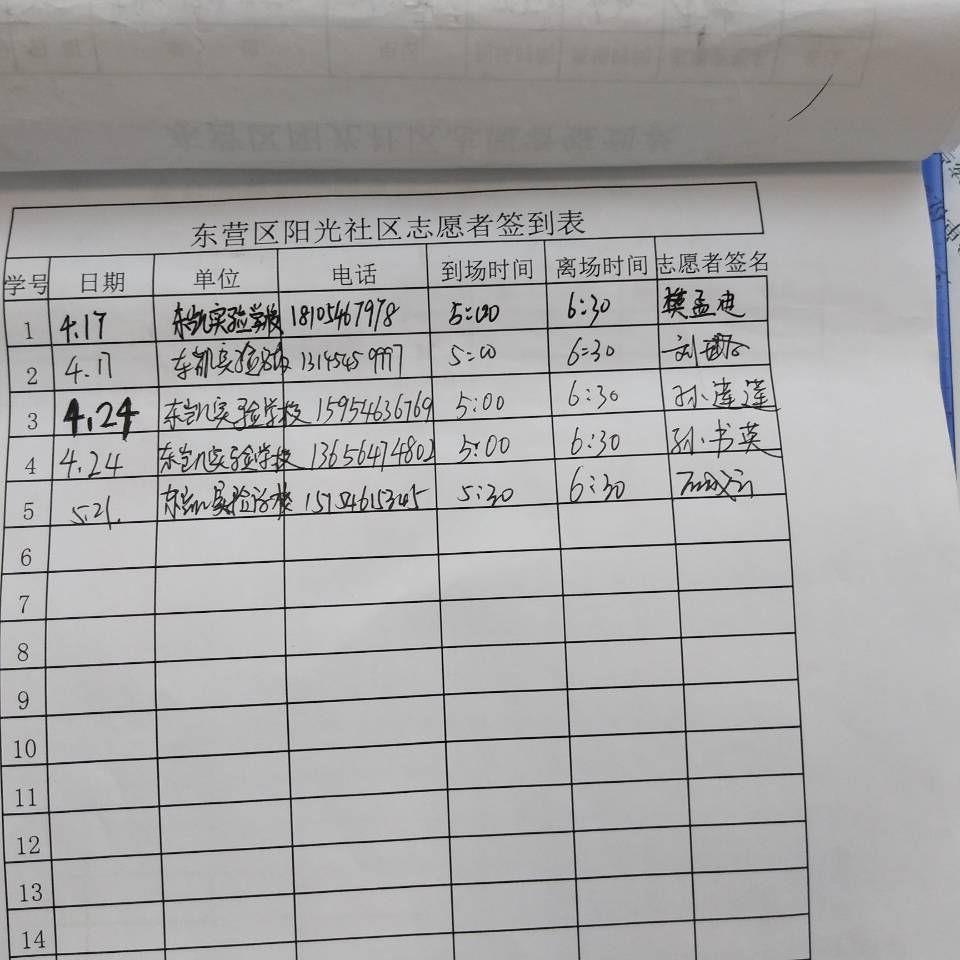 东营区阳光社区志愿者签到表
学号 日期 单位 电话 到场时间 离场时间 志愿者签名
1 4.17 东凯实验学校 18105467978 5:00 6:30 孟迪
2 4.17 东凯实验学校 13145459997 5:00 6:30 刘
3 4.24 东凯实验学校 15954636769 5:00 6:30 孙莲莲
4 4.24 东凯实验学校 13656474802 5:00 6:30 孙书英
5 5.21. 东凯实验学校 15754615345 5:30 6:30
6
7
8
9
10
11
12
13
14